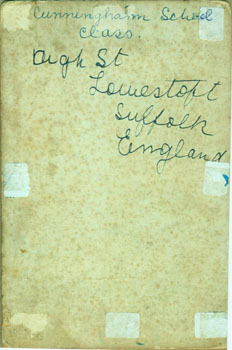 Cunningham School
Class.
High St
Lowestoft
Suffolk
England